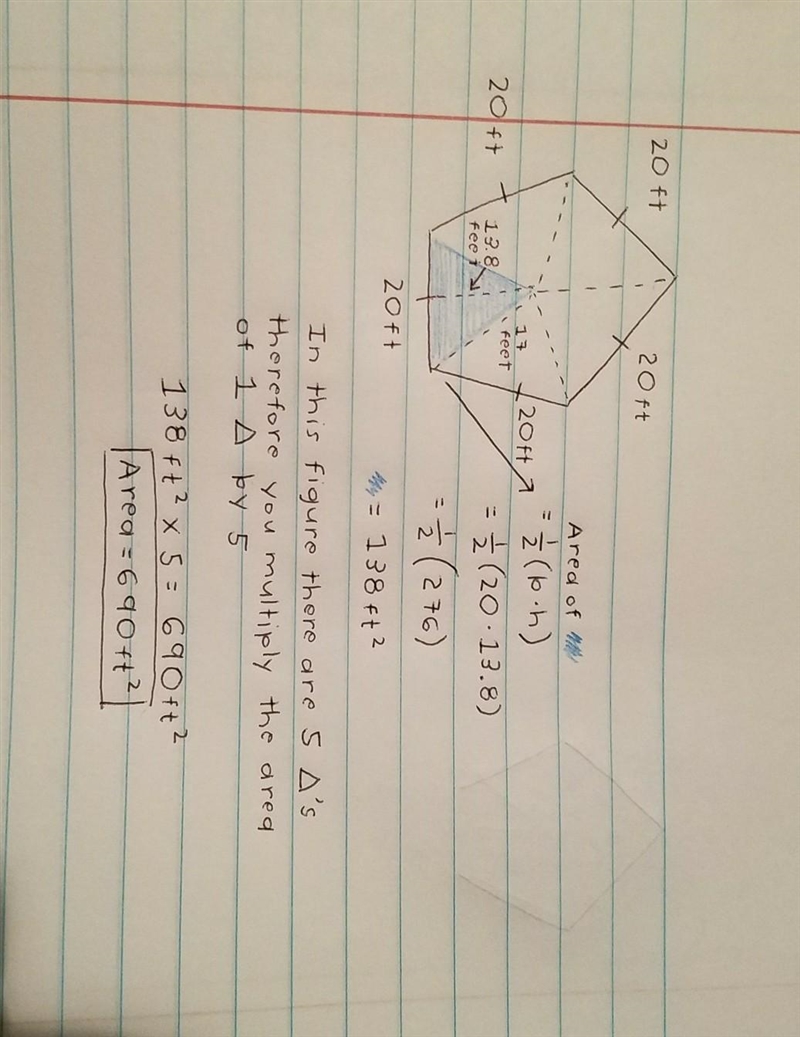 20 ft
20 ft
20 ft
20 ft
20 ft
13.8
feet
17
feet
Area of
= 1/2 (b·h)
= 1/2 (20·13.8)
= 1/2 (276)
= 138 ft²
In this figure there are 5 △'s
therefore you multiply the area
of 1 △ by 5
138 ft² x 5 = 690 ft²
Area = 690 ft²